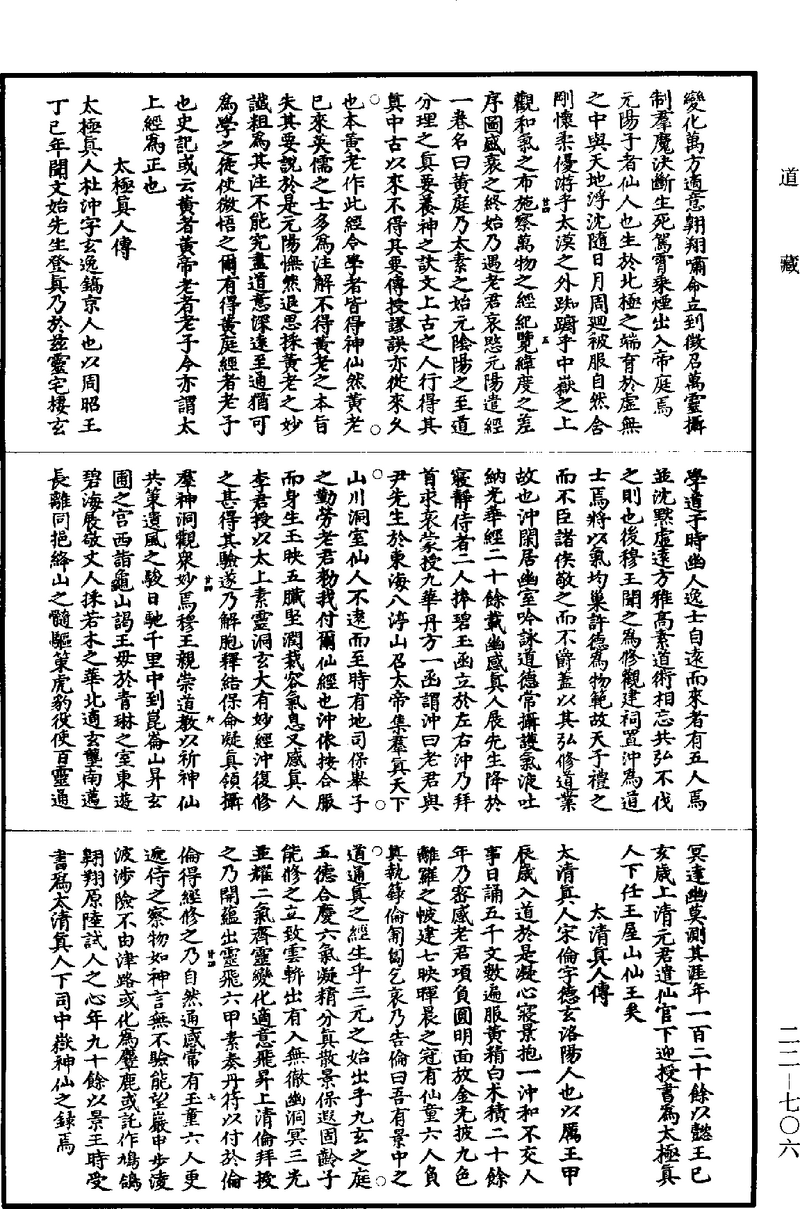 道藏
二二—七〇六
變化萬方適意翱翔嘯命立到徵召萬靈攝
制羣魔決斷生死駕霄乘煙出入帝庭焉
元陽子者仙人也生於北極之端育於虛無
之中與天地浮沈隨日月周迴被服自然含
剛懷柔優游乎太漠之外踟躕乎中嶽之上
觀和氣之布施察萬物之經紀覽緯度之差
序圖盛衰之終始乃遇老君哀愍元陽遺經
一卷名曰黃庭乃太素之始元陰陽之至道
分理之真要養神之訣文上古之人行得其
真中古以來不得其要傳授謬誤亦從來久
也本黃老作此經令學者皆得神仙然黃老
已來英儒之士多爲注解不得黃老之本旨
失其要說於是元陽憮然退思採黃老之妙
識粗爲其注不能究盡道意深遠至通猶可
爲學之徒使微悟之爾有得黃庭經者老子
也史記或云黃者黃帝老者老子今亦謂太
上經爲正也
太極真人傳
太極真人杜沖字玄逸鎬京人也以周昭王
丁已年聞文始先生登真乃於茲靈宅棲玄
學道于時幽人逸士自遠而來者有五人焉
並沈默虛遠方雅高素道術相忘共弘不伐
之則也後穆王聞之爲修觀建祠置沖爲道
士焉將以氣均巢許德爲物範故天子禮之
而不臣諸侯敬之而不爵蓋以其弘修道業
故也沖閑居幽室吟詠道德常攝護氣液吐
納光華經二十餘載幽感真人展先生降於
寢靜侍者二人捧碧玉函立於左右沖乃拜
首求哀蒙授九華丹方一函謂沖曰老君與
尹先生於東海八渟山召太帝集羣真天下
山川洞室仙人不遠而至時有地司保舉子
之勤勞老君勑我付爾仙經也沖依按合服
而身生玉映五臟堅潤裁容氣息又感真人
李君授以太上素靈洞玄大有妙經沖復修
之甚得其驗遂乃解胞釋結保命凝真領攝
羣神洞觀衆妙焉穆王親崇道教以祈神仙
共策遺風之駿日馳千里中到崑崙山昇玄
圃之宮西詣龜山謁王母於青琳之室東遊
碧海展敬丈人採若木之華北適玄壟南邁
長離同挹絳山之髓驅策虎豹役使百靈通
冥達幽莫測其涯年一百二十餘以懿王已
亥歲上清元君遣仙官下迎授書爲太極真
人下任王屋山仙王矣
太清真人傳
太清真人宋倫字德玄洛陽人也以厲王甲
辰歲入道於是凝心寢景抱一沖和不交人
事日誦五千文數遍服黃精白朮積二十餘
年乃密感老君項負圓明面放金光披九色
離羅之帔建七映暉晨之冠有仙童六人負
真執籙倫匍匐乞哀乃告倫曰吾有景中之
道通真之經生乎三元之始出乎九玄之庭
五德合慶六氣凝精分真散景保遐固齡子
能修之立致雲軿出有入無徹幽洞冥三光
並耀二氣齊靈變化適意飛昇上清倫拜授
之乃開蘊出靈飛六甲素奏丹符以付於倫
倫得經修之乃自然通感常有玉童六人更
遞侍之察物如神言無不驗能望巖申步淩
波涉險不由津路或化爲麞鹿或託作鳩鴿
翱翔原陸試人之心年九十餘以景王時受
書爲太清真人下司中嶽神仙之錄焉